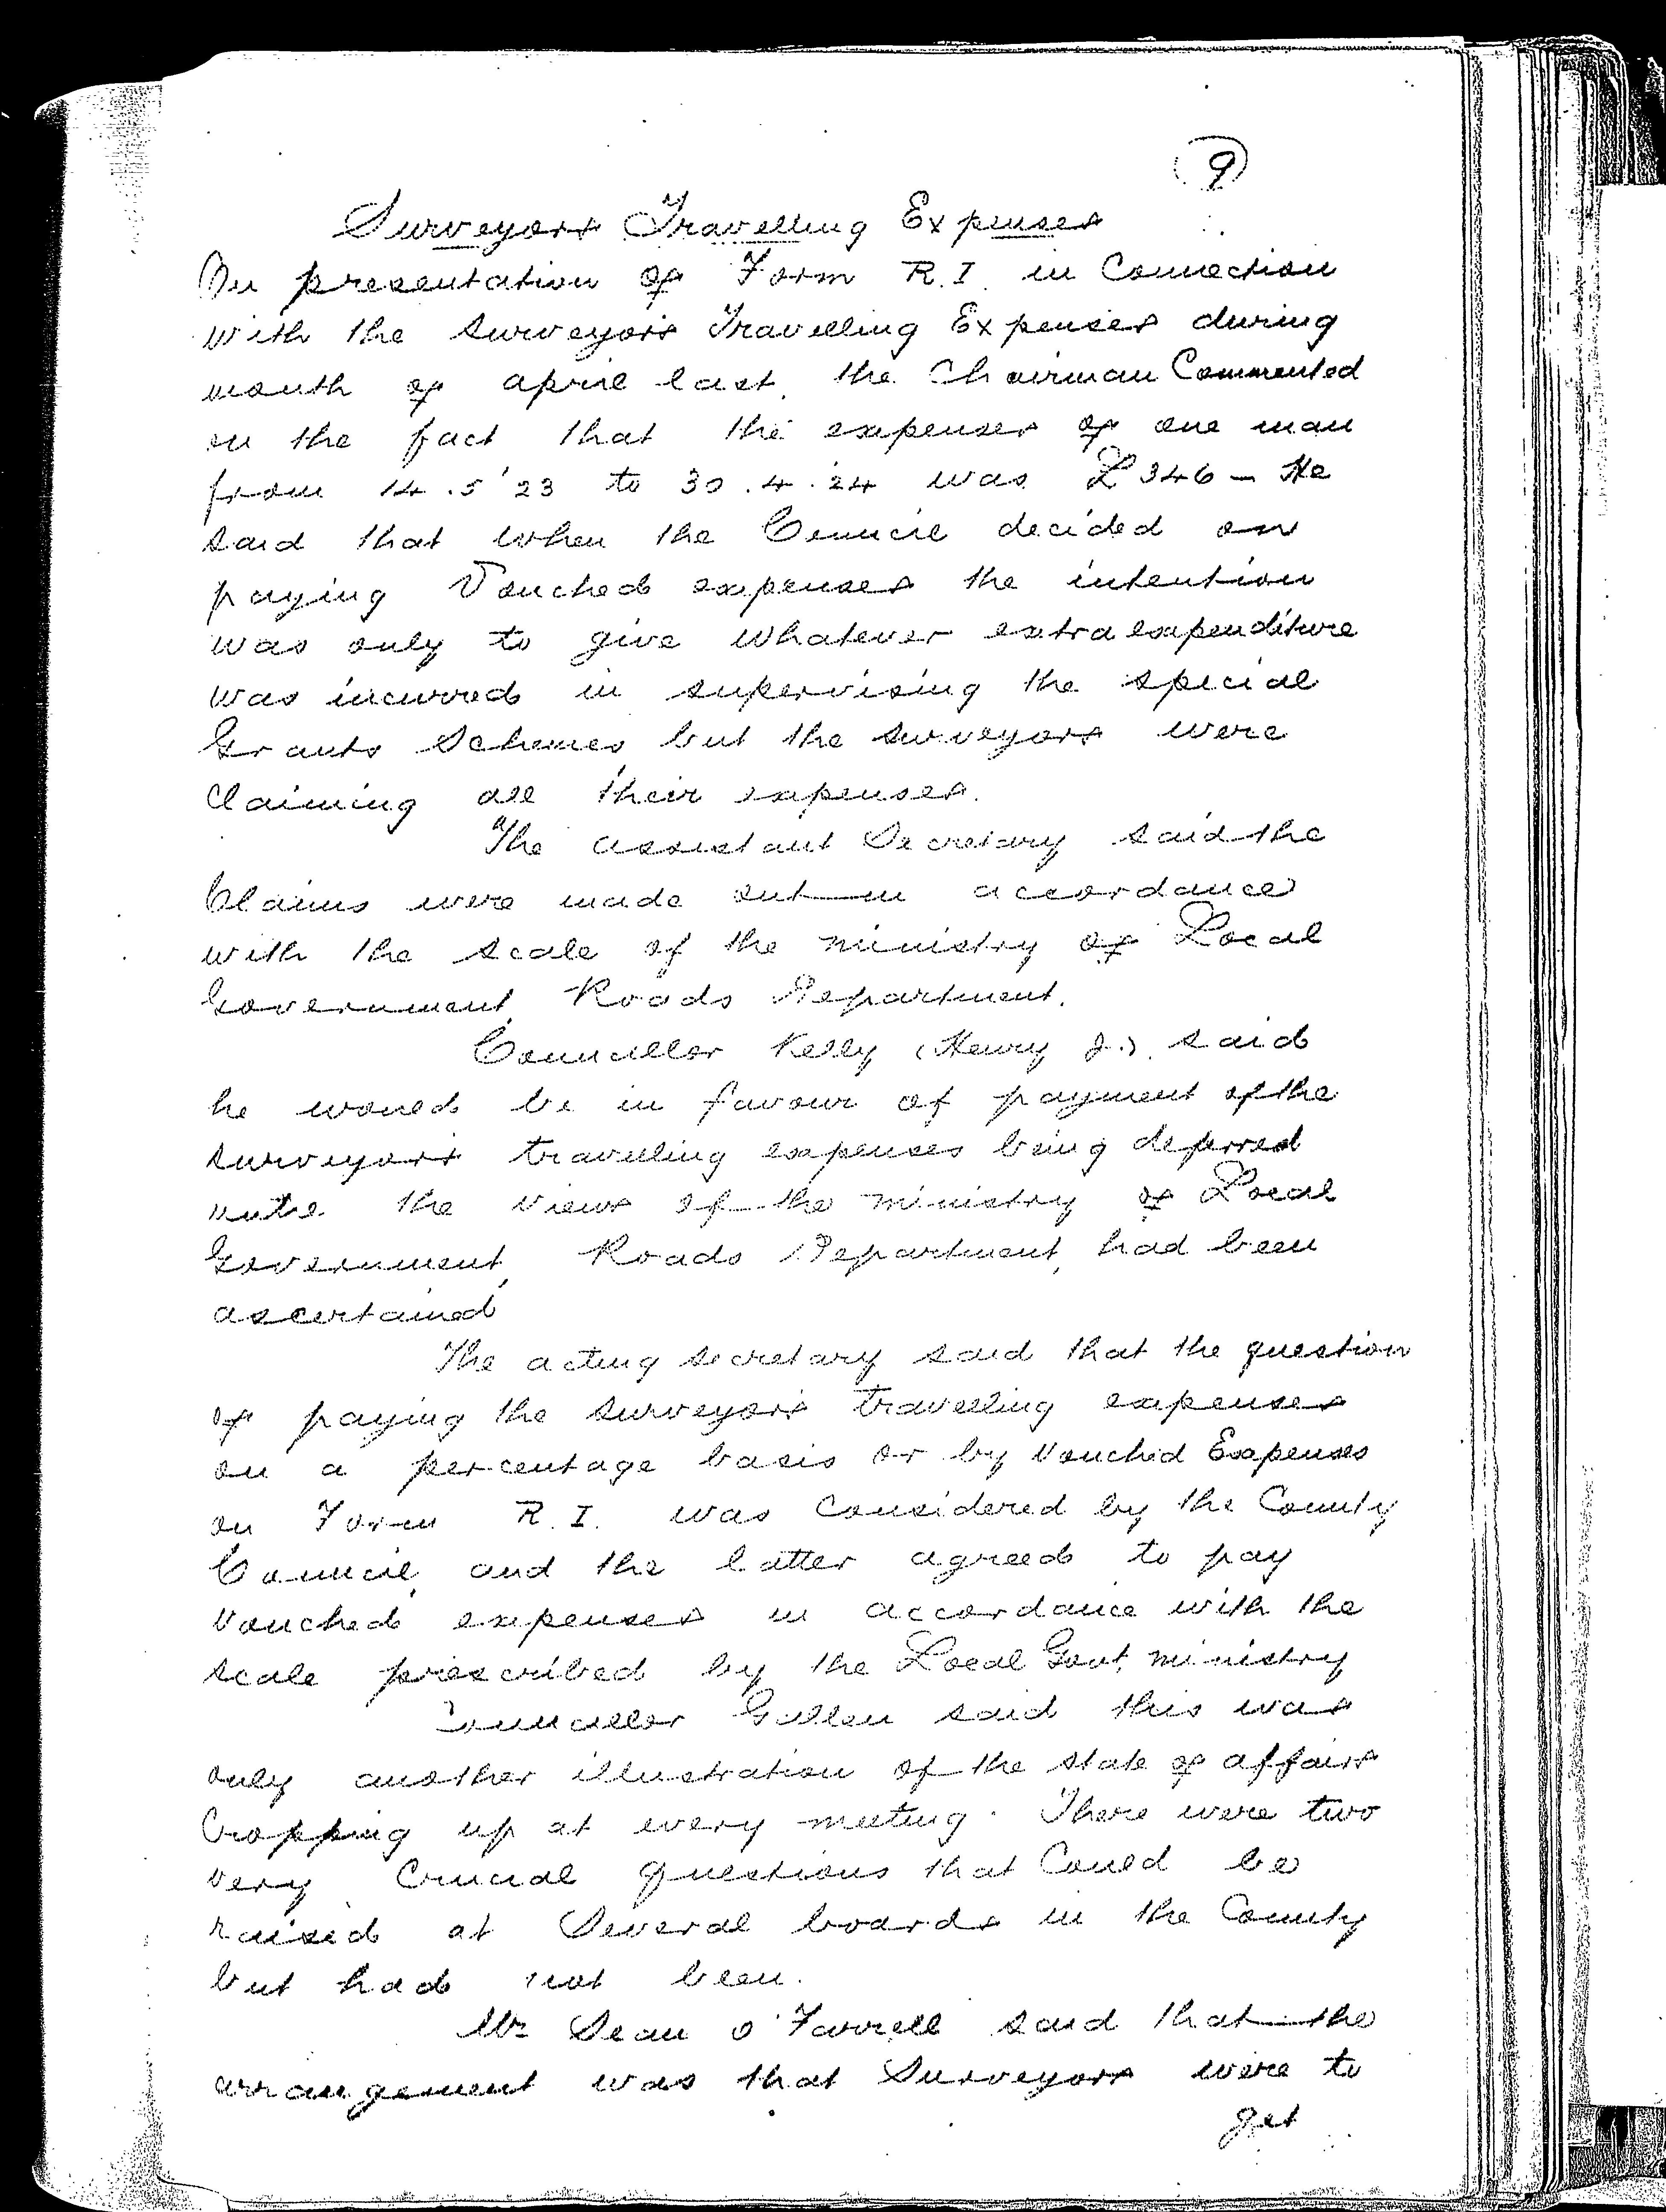 9
Surveyors Travelling Expenses
On presentation of Form R.I. in Connection
with the surveyors Travelling Expenses during
month of april last, the Chairman Commented
on the fact that the expenses of one man
from 14.5.'23 to 30.4.'24 was £346 - He
said that when the Council decided on
paying Vouched expenses the intention
was only to give whatever extra expenditure
was incurred in supervising the special
Grants Schemes, but the surveyors were
Claiming all their expenses.
The assistant Secretary said the
Claims were made out in accordance
with the scale of the ministry of Local
Government, Roads Department.
Councillor Kelly (Henry J.) said
he would be in favour of payment of the
surveyors travelling expenses being deferred
until the views of the ministry of Local
Government, Roads Department, had been
ascertained
The acting secretary said that the question
of paying the surveyors travelling expenses
on a percentage basis or by Vouched Expenses
on Form R.I. was Considered by the County
Council, and the latter agreed to pay
Vouched expenses in accordance with the
scale prescribed by the Local Govt. ministry
Councillor Gallen said this was
only another illustration of the state of affairs
Cropping up at every meeting. There were two
very Crucial questions that Could be
raised at Several boards in the County
but had not been.
Mr Sean O'Farrell said that the
arrangement was that Surveyors were to
get